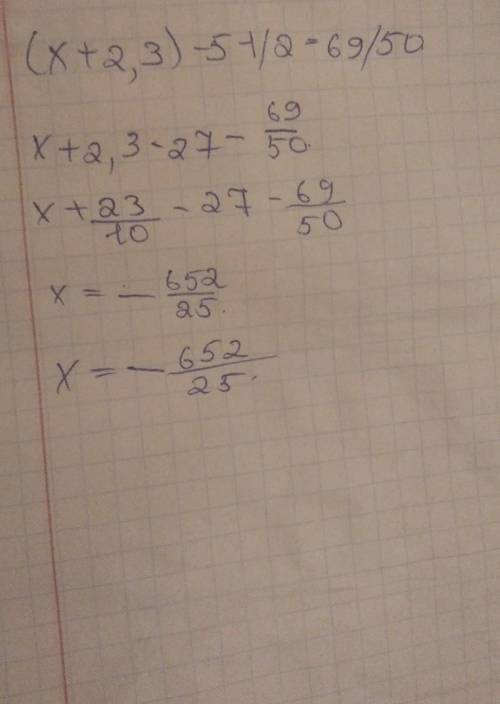 (x+2,3)-5-1/2=69/50
x+2,3-27-69/50
x+23/10-27-69/50
x=-652/25
x=-652/25